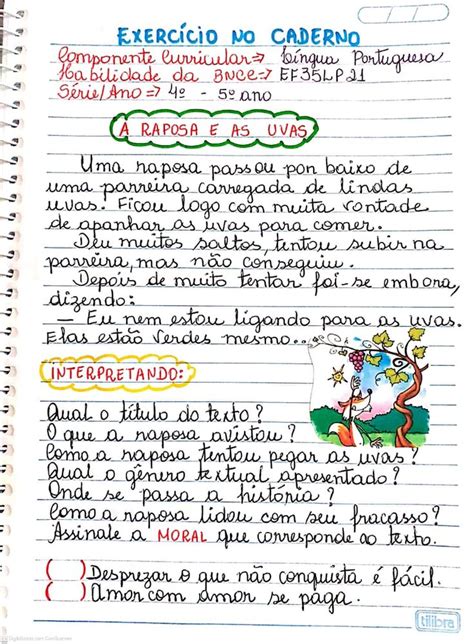 EXERCÍCIO NO CADERNO
Componente Curricular⇒ Língua Portuguesa
Habilidade da BNCC⇒ EF35LP21
Série/Ano ⇒ 4º - 5º ano
A RAPOSA E AS UVAS
Uma raposa passou por baixo de
uma parreira carregada de lindas
uvas. Ficou logo com muita vontade
de apanhar as uvas para comer.
Deu muitos saltos, tentou subir na
parreira, mas não conseguiu.
Depois de muito tentar foi-se embora,
dizendo:
— Eu nem estou ligando para as uvas.
Elas estão verdes mesmo...
INTERPRETANDO:
Qual o título do texto?
O que a raposa avistou?
Como a raposa tentou pegar as uvas?
Qual o gênero textual apresentado?
Onde se passa a história?
Como a raposa lidou com seu fracasso?
Assinale a MORAL que corresponde ao texto.
( ) Desprezar o que não conquista é fácil.
( ) Amor com amor se paga.
tilibra